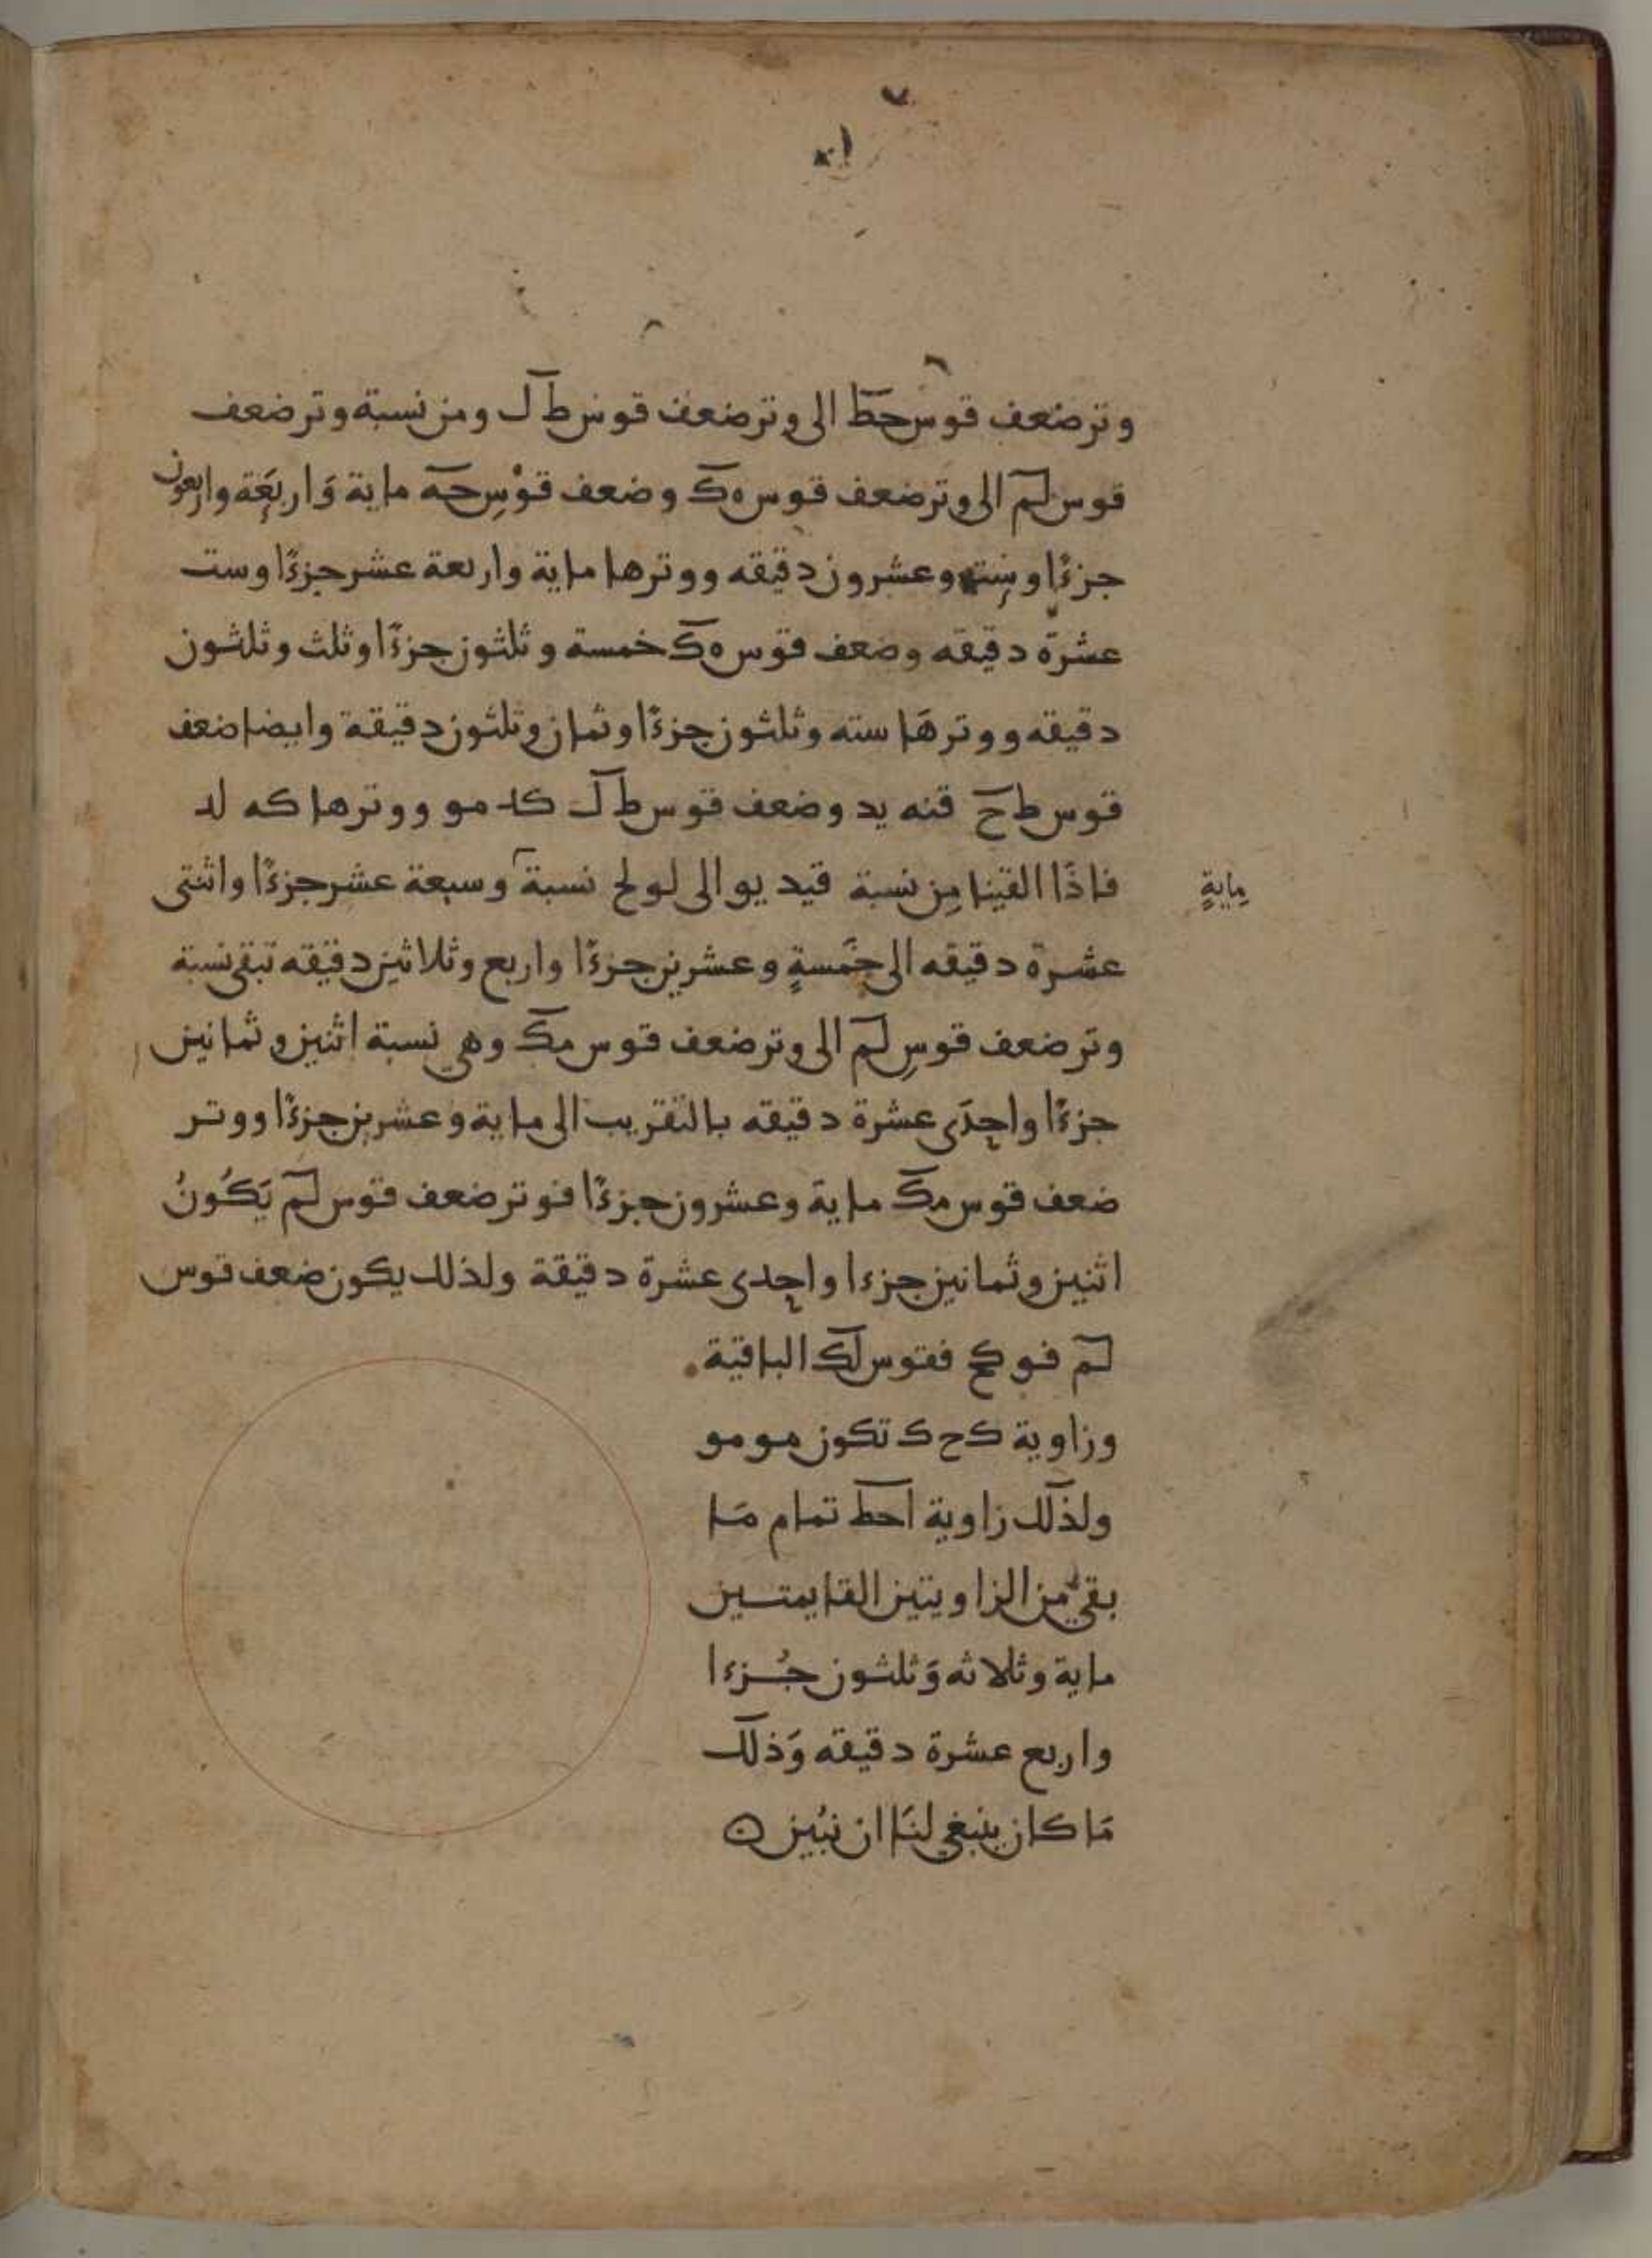 وتر ضعف قوس حط الى وتر ضعف قوس ط ل ومن نسبة وتر ضعف
قوس لم الى وتر ضعف قوس ه ك وضعف قوْسِ حه ماية وَاربعَة واربعون
جزءًا وست وعشرون دقيقه ووترها ماية واربعة عشر جزءًا وست
عشرة دقيقه وضعف قوس ه ك خمسة وثلثون جزءًا وثلث وثلثون
دقيقه ووترهَا سته وثلثون جزءًا وثمان وثلثون دقيقة وايضا ضعف
قوس ط ح قنه يد وضعف قوس ط ل كد مو ووترها كه لد
فاذَا القينا مِن نسبة قيد يو الى لو لح نسبة وسبعة عشر جزءًا واثنتى
مِايةٍ
عشرة دقيقه الى خَمسةٍ وعشرين جزءًا واربع وثلاثين دقيقه تبقى نسبة
وتر ضعف قوسِ لم الى وتر ضعف قوس مك وهي نسبة اثنين وثمانين
جزءًا واحدَى عشرة دقيقه بالتقريب الى ماية وعشرين جزءًا ووتر
ضعف قوس مك ماية وعشرون جزءًا فوتر ضعف قوس لم يَكُونُ
اثنين وثمانين جزءا واحدى عشرة دقيقة ولذلك يكون ضعف قوس
لم فو كح فقوس لك الباقية
وزاوية ك ح ك تكون مو مو
ولذلك زاوية احط تمام مَا
بقي من الزاويتين القايمتين
ماية وثلاثه وَثلثون جُزءا
واربع عشرة دقيقه وَذلك
مَا كان ينبغي لنَا ان نبُين